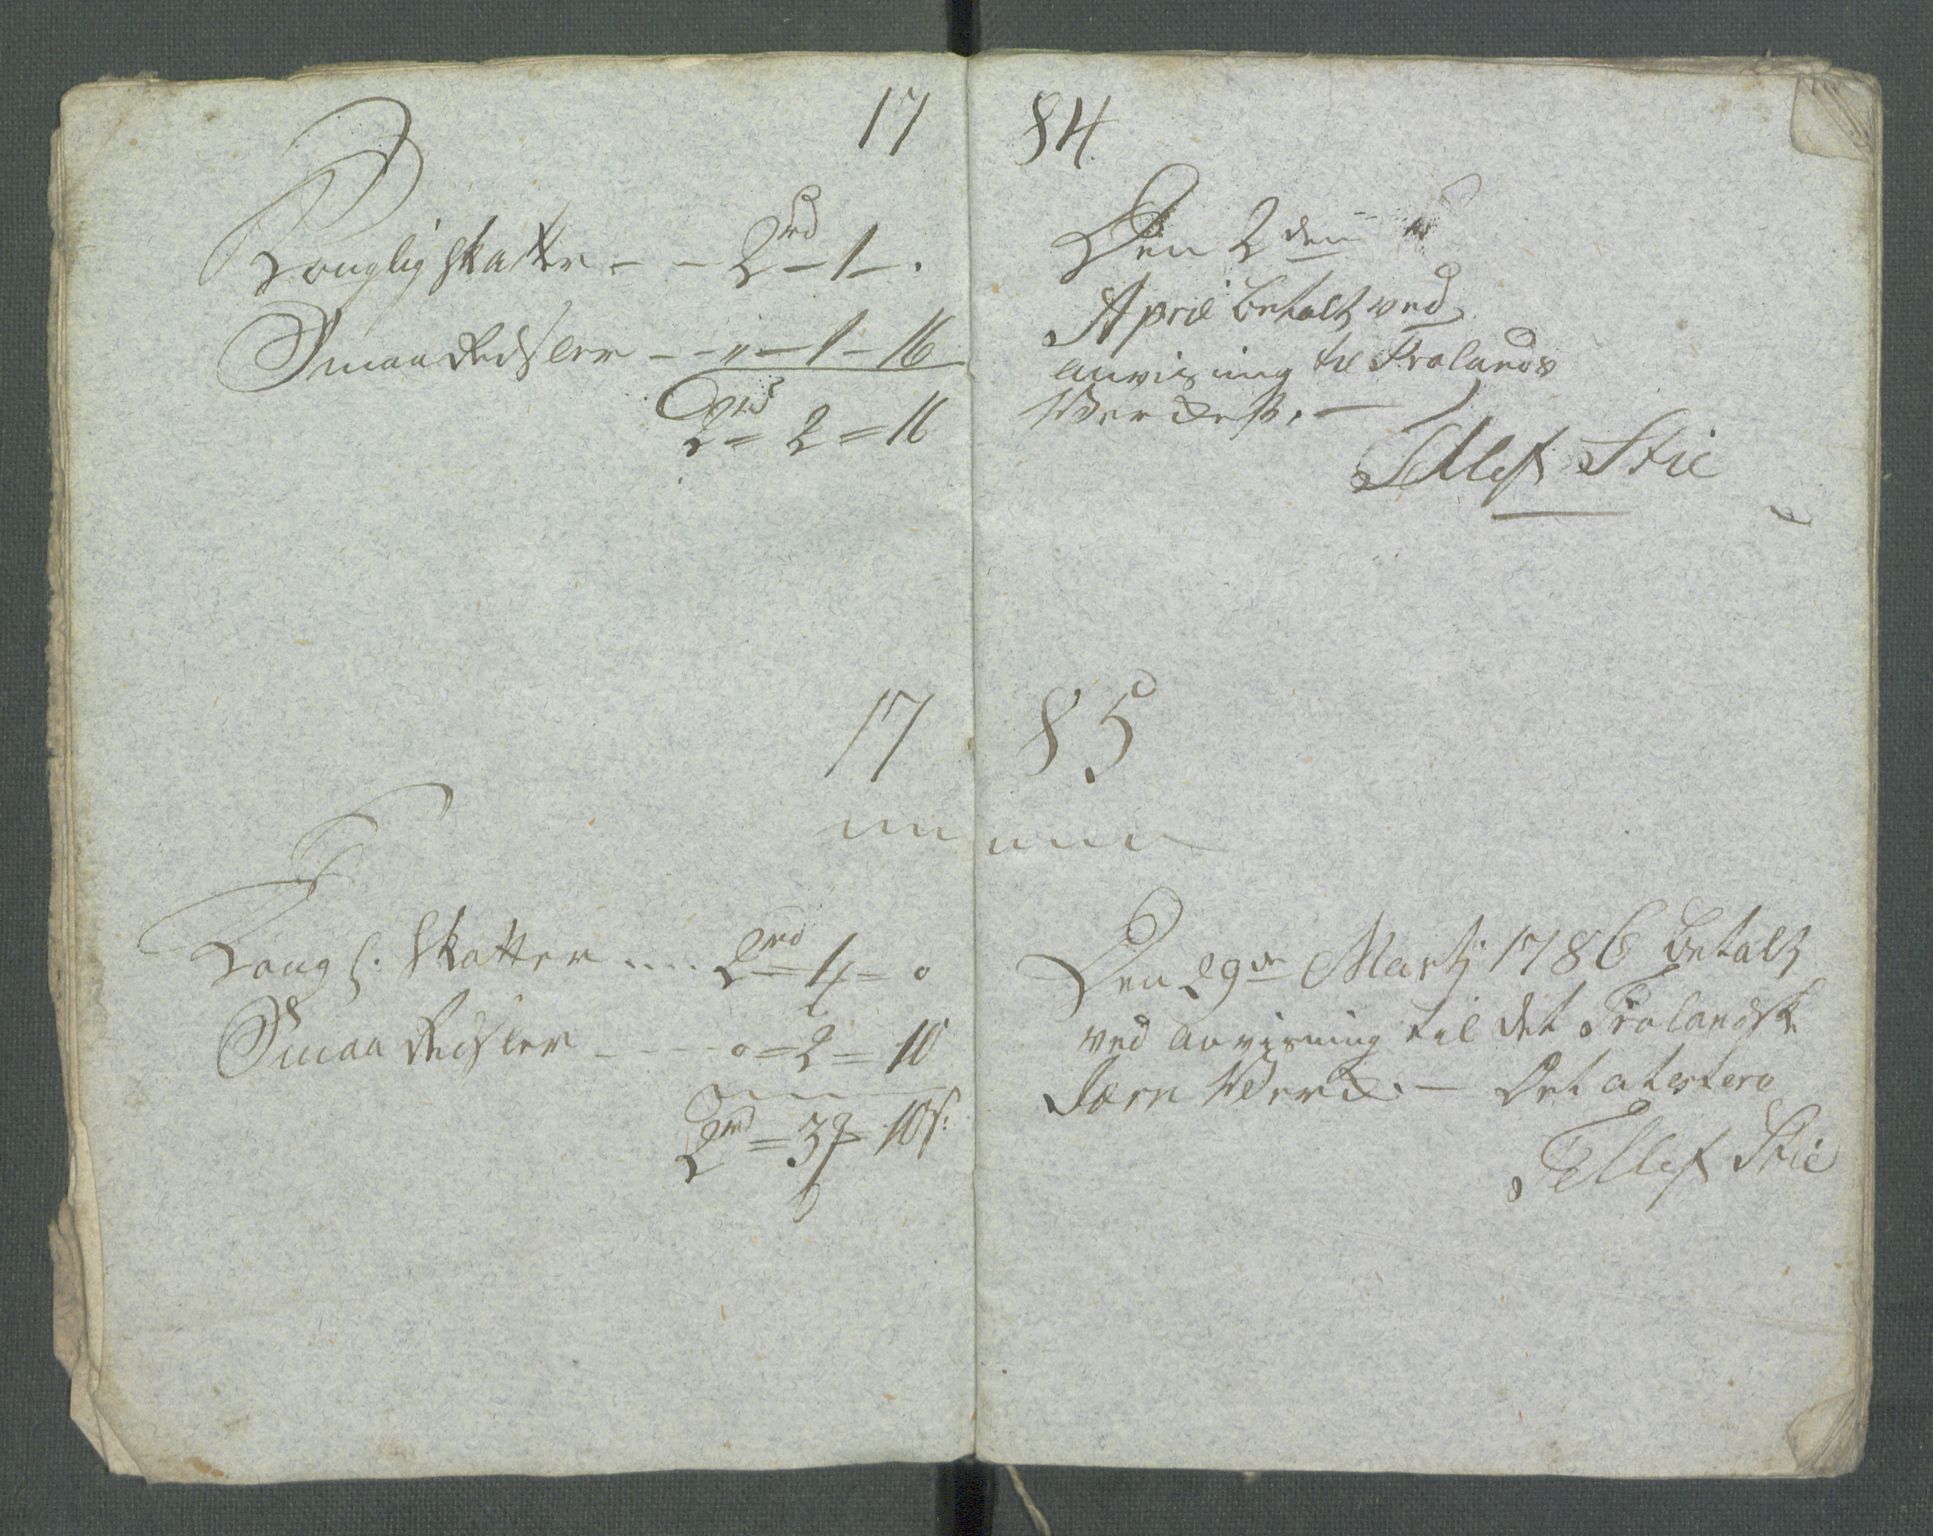 1784
Konglig skatter - - 2rd - 1 - .
Smaa Redsler - - " - 1 - 16
2rd = 2 = 16
Den 2den
April betalt ved
anvisning til Frolands
Werckess. -
Tellef Stie
1785
Kongl. skatter .... 2rd = 1 = 0
Smaa Redsler - - - - 0 = 2 = 10
2rd = 3 = 10 s.
Den 29de Martj 1786 betalt
ved anvisning til det Frolandske
Jærn Werck. - Det atesterer
Tellef Stie